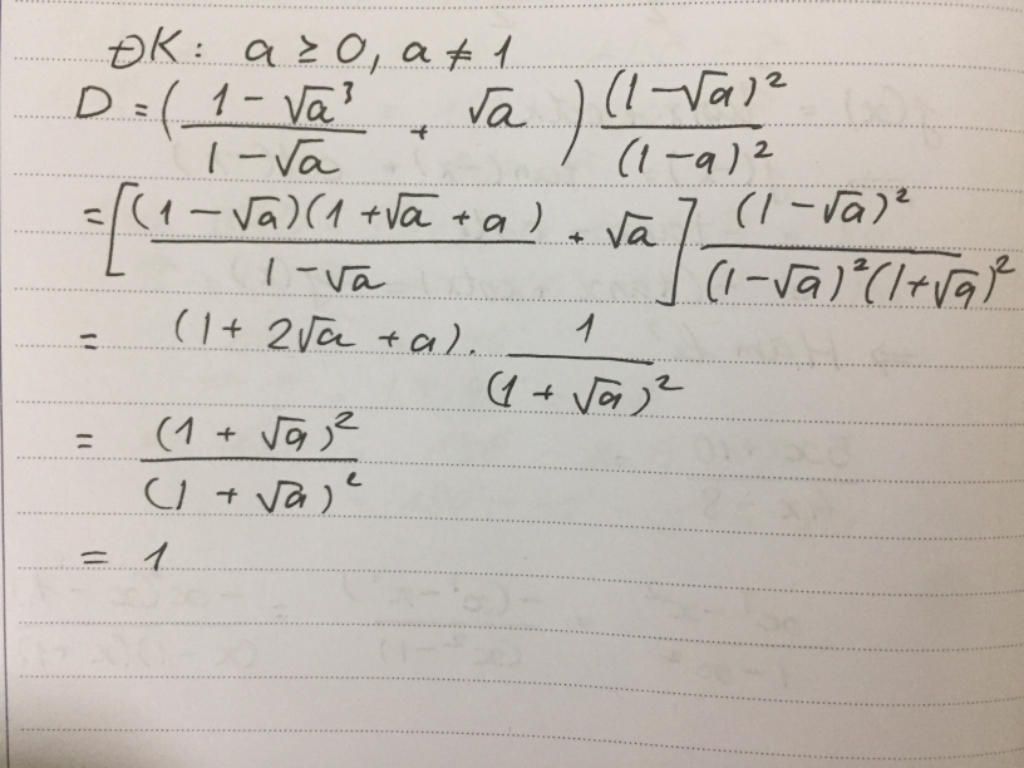 ĐK: a ≥ 0, a ≠ 1
D = ( (1 - √a³)/(1 - √a) + √a ) (1 - √a)²/(1 - a)²
= [ (1 - √a)(1 + √a + a)/(1 - √a) + √a ] (1 - √a)²/((1 - √a)²(1 + √a)²)
= (1 + 2√a + a) . 1/(1 + √a)²
= (1 + √a)²/(1 + √a)²
= 1